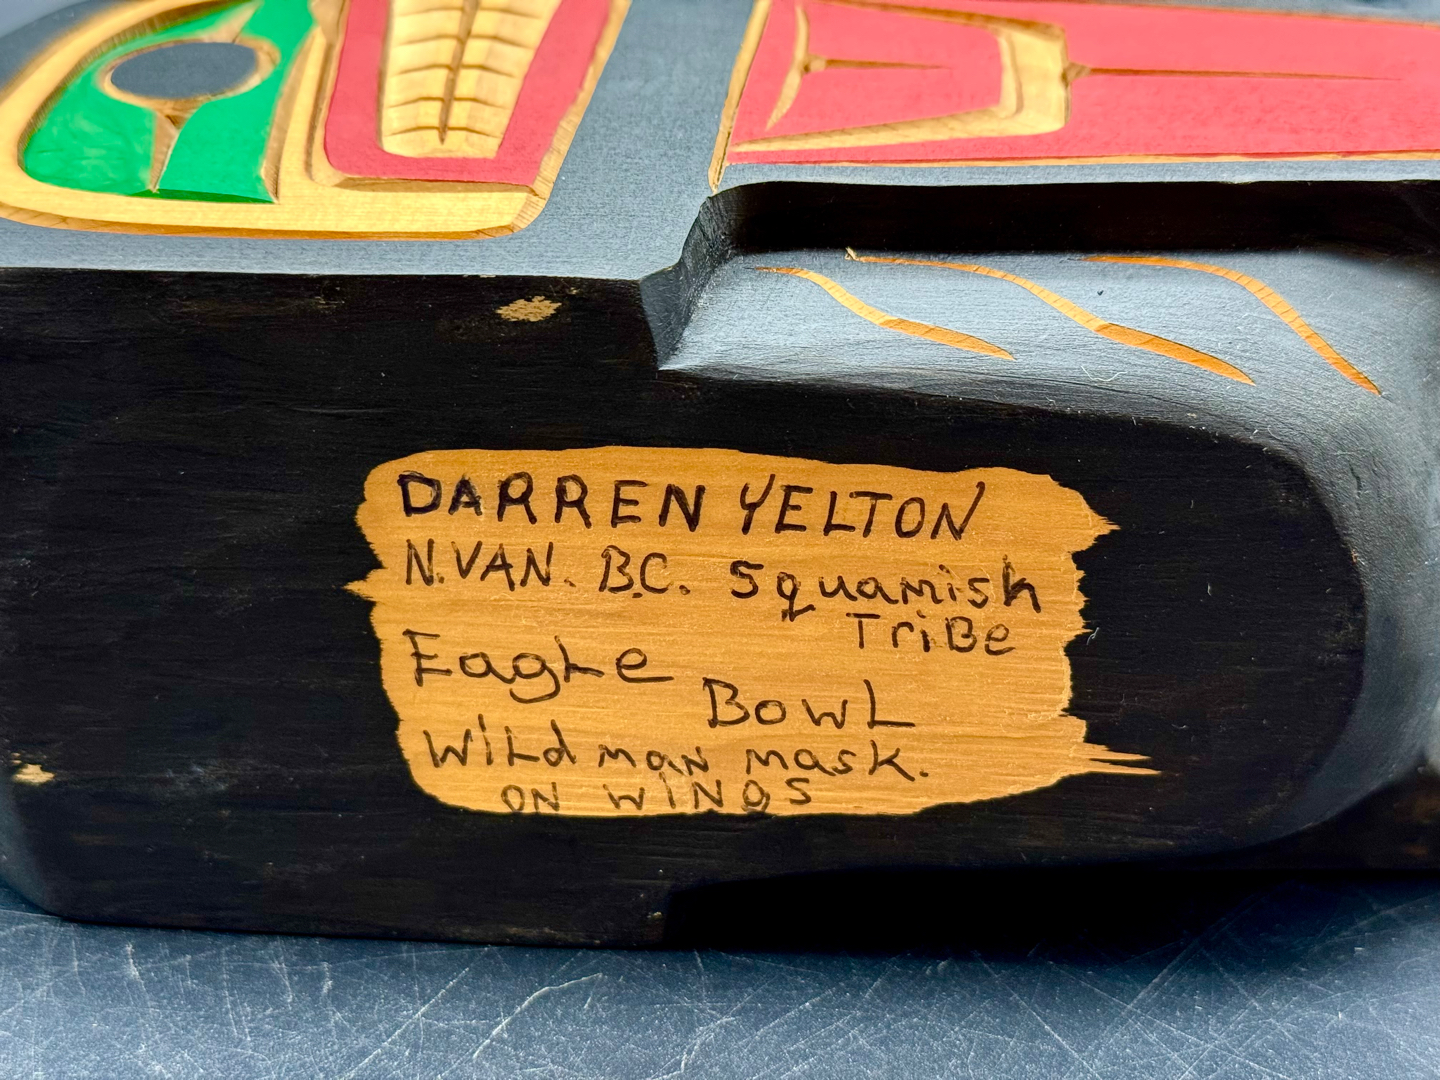 DARREN YELTON
N.VAN. B.C. Squamish
TriBe
EagLe
BowL
WiLd man mask.
ON WINGS